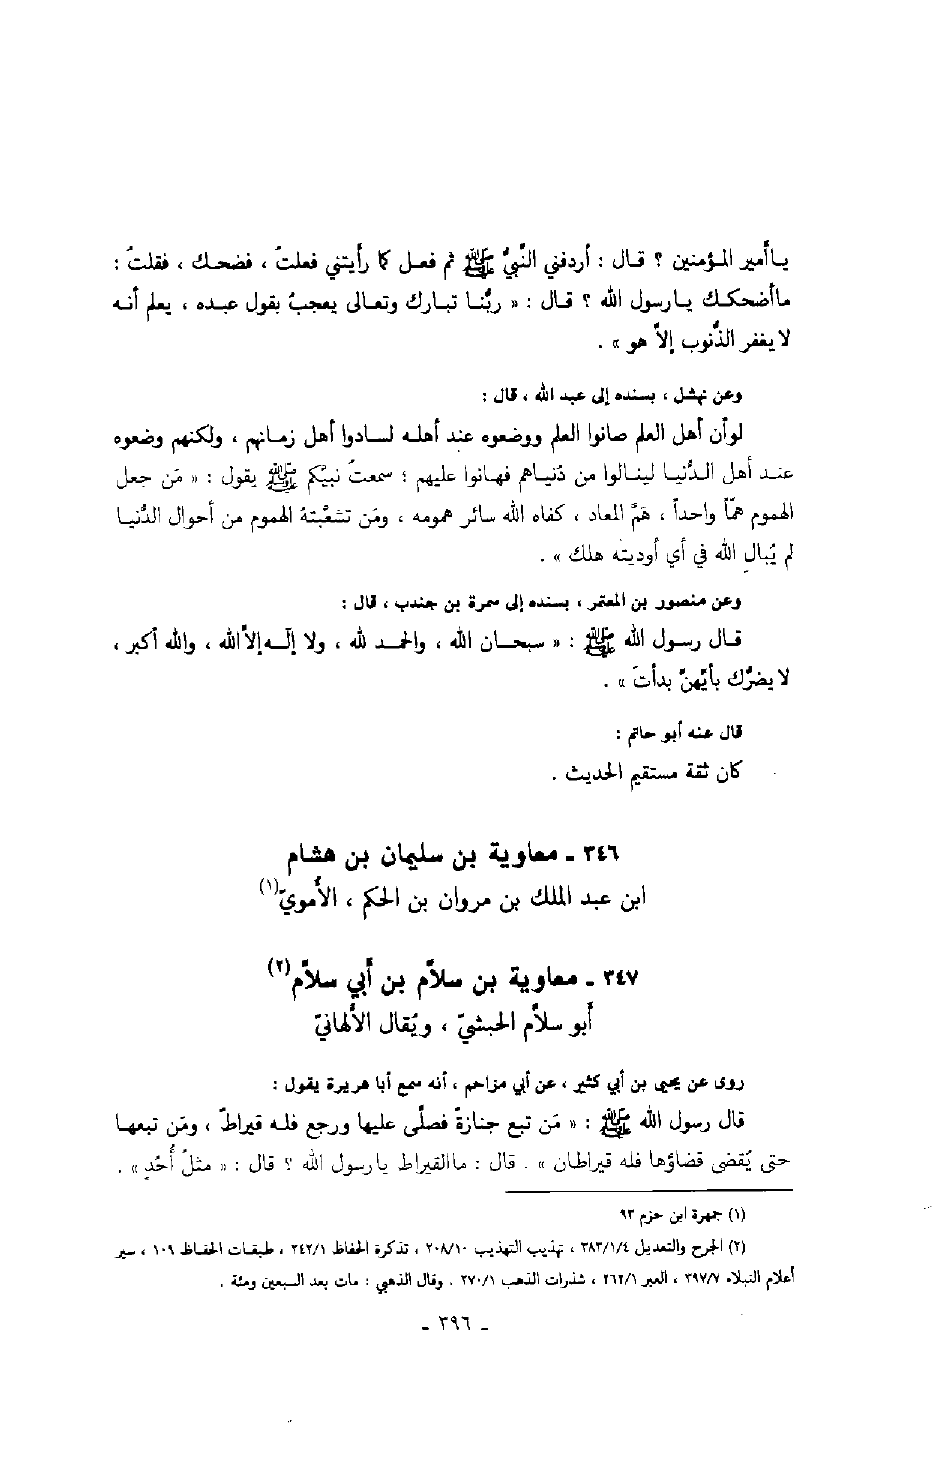 ياأمير المؤمنين ؟ قال : أردفني النَّبيُّ ﷺ ثم فعل كما رأيتني فعلتُ ، فضحك ، فقلتُ :
ماأضحكك يارسول الله ؟ قال : « ربُّنا تبارك وتعالى يعجبُ بقول عبده ، يعلم أنه
لا يغفر الذُّنوب إلاَّ هو » .
وعن نهشل ، بسنده إلى عبد الله ، قال :
لوأن أهل العلم صانوا العلم ووضعوه عند أهله لسادوا أهل زمانهم ، ولكنهم وضعوه
عند أهل الدُّنيا لينالوا من دُنياهم فهانوا عليهم ؛ سمعتُ نبيّكم ﷺ يقول : « مَن جعل
الهموم همّاً واحداً ، همَّ المعاد ، كفاه الله سائر همومه ، ومَن تشعَّبتهُ الهموم من أحوال الدُّنيا
لم يُبالِ الله في أي أوديته هلك » .
وعن منصور بن المعتمر ، بسنده إلى سمرة بن جندب ، قال :
قال رسول الله ﷺ : « سبحان الله ، والحمد لله ، ولا إله إلاَّ الله ، والله أكبر ،
لا يضرُّك بأيّهنّ بدأتَ » .
قال عنه أبو حاتم :
كان ثقة مستقيم الحديث .
٣٤٦ ـ معاوية بن سليمان بن هشام
ابن عبد الملك بن مروان بن الحكم ، الأُمويّ(١)
٣٤٧ ـ معاوية بن سلاَّم بن أبي سلاَّم(٢)
أبو سلاَّم الحبشيّ ، ويُقال الأَلهانيّ
روى عن يحيى بن أبي كثير ، عن أبي مزاحم ، أنه سمع أبا هريرة يقول :
قال رسول الله ﷺ : « مَن تبع جنازةً فصلَّى عليها ورجع فله قيراطٌ ، ومَن تبعها
حتى يُقضى قضاؤها فله قيراطان » . قال : ماالقيراط يارسول الله ؟ قال : « مثلُ أُحُدٍ » .
(١) جمهرة ابن حزم ٩٣
(٢) الجرح والتعديل ٣٨٣/١/٤ ، تهذيب التهذيب ٢٠٨/١٠ ، تذكرة الحفاظ ٢٤٢/١ ، طبقات الحفاظ ١٠٩ ، سير
أعلام النبلاء ٣٩٧/٧ ، العبر ٢٦٢/١ ، شذرات الذهب ٢٧٠/١ . وقال الذهبي : مات بعد السبعين ومئة .
ـ ٣٩٦ ـ